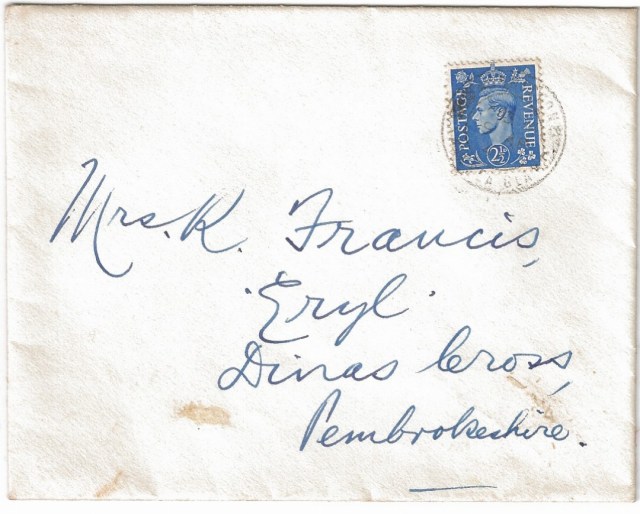 POSTAGE REVENUE
2½
Mrs. K. Francis,
'Eryl'
Dinas Cross,
Pembrokeshire.